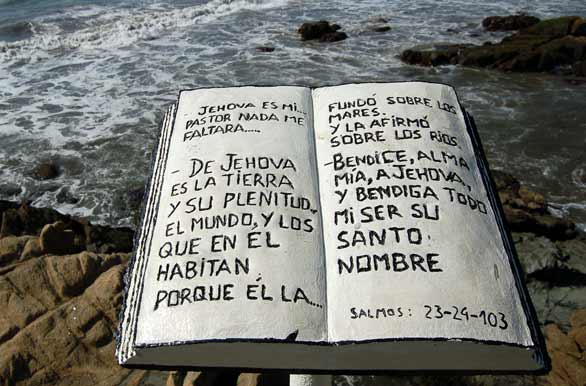 JEHOVA ES MI...
PASTOR NADA ME
FALTARA.....
- DE JEHOVA
ES LA TIERRA
Y SU PLENITUD,
EL MUNDO, Y LOS
QUE EN ÉL
HABITAN
PORQUE ÉL LA...
FUNDÓ SOBRE LOS
MARES.
Y LA AFIRMÓ
SOBRE LOS RIOS.
- BENDICE, ALMA
MÍA, A JEHOVA,
Y BENDIGA TODO
MI SER SU
SANTO.
NOMBRE
SALMOS: 23-24-103